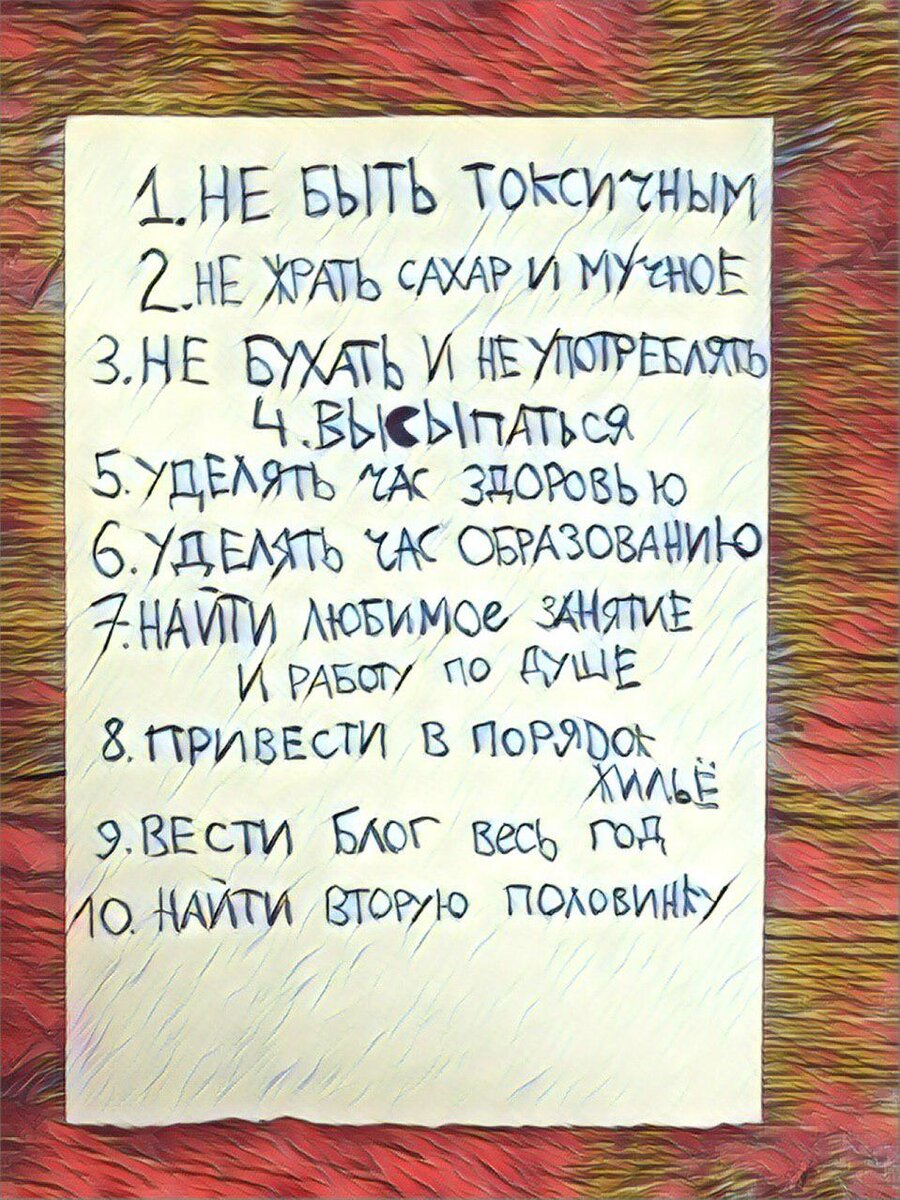 1. НЕ БЫТЬ ТОКСИЧНЫМ
2. НЕ ЖРАТЬ САХАР И МУЧНОЕ
3. НЕ БУХАТЬ И НЕ УПОТРЕБЛЯТЬ
4. ВЫСЫПАТЬСЯ
5. УДЕЛЯТЬ ЧАС ЗДОРОВЬЮ
6. УДЕЛЯТЬ ЧАС ОБРАЗОВАНИЮ
7. НАЙТИ ЛЮБИМОЕ ЗАНЯТИЕ
И РАБОТУ ПО ДУШЕ
8. ПРИВЕСТИ В ПОРЯДОК
ЖИЛЬЁ
9. ВЕСТИ БЛОГ ВЕСЬ ГОД
10. НАЙТИ ВТОРУЮ ПОЛОВИНКУ